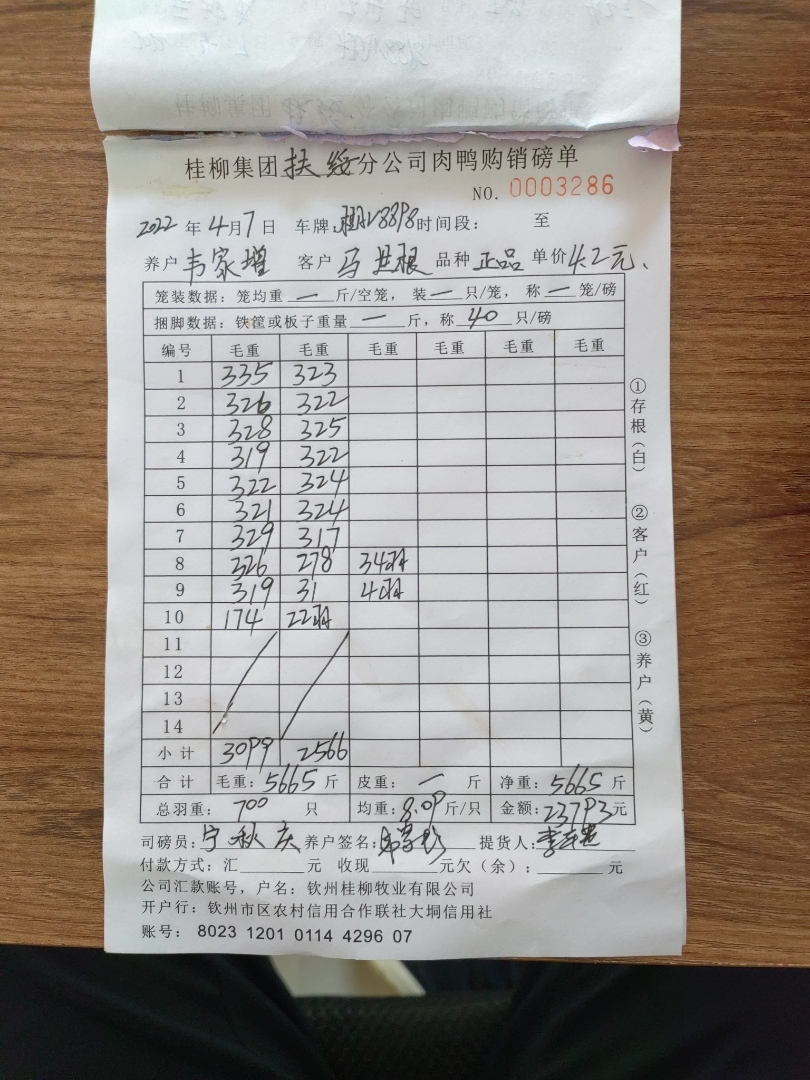 桂柳集团扶绥分公司肉鸭购销磅单
NO. 0003286
2022 年 4月7日 车牌: 8898 时间段: 至
养户 韦家增 客户 马进根 品种 正品 单价 4.2元、
笼装数据: 笼均重 一 斤/空笼, 装 一 只/笼, 称 一 笼/磅
捆脚数据: 铁筐或板子重量 一 斤, 称 40 只/磅
编号 毛重 毛重 毛重 毛重 毛重 毛重
1 335 323
2 326 322
3 328 325
4 319 322
5 322 324
6 321 324
7 329 317
8 326 278 34羽
9 319 31 4羽
10 174 22羽
11
12
13
14
小计 3099 2566
合计 毛重: 5665 斤 皮重: 一 斤 净重: 5665 斤
总羽重: 700 只 均重: 8.09 斤/只 金额: 23793元
司磅员: 宁秋庆 养户签名: 提货人:
付款方式: 汇 元 收现 元欠(余): 元
公司汇款账号, 户名: 钦州桂柳牧业有限公司
开户行: 钦州市区农村信用合作联社大垌信用社
账号: 8023 1201 0114 4296 07
①存根(白)
②客户(红)
③养户(黄)